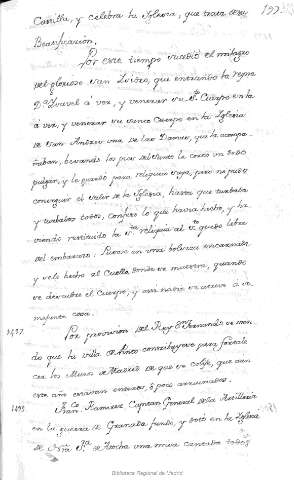 Castilla, y celebra la Iglesia, que trata de su
Beatificación,
Por este tiempo sucedió el milagro
del glorioso San Isidro, que entrando la reyna
Dª Ysavel á ver, y venerar su Sto Cuerpo en la
á ver, y venerar su santo Cuerpo en la Iglesia
de San Andres una de las Damas, que la acompa-
ñaban, besando los pies del Santo le cortó un dedo
pulgar, y le guardó para reliquia suya, pero no pudo
conseguir el salir de la Iglesia, hasta que turbada
y confesó lo que havia hecho, y ha
viendo restituido la Sta reliquia al Sto quedó libre
del embarazo. Pusose en una bolsita encarnada
y este hecho al Cuello donde se muestra, quando
se descubre el Cuerpo, y assi nadie se atreve á se-
mejante cosa.
1492
Por provision del Rey Dn Fernando se man-
do que la villa de Pinto contribuyese para fortale
cer los Muros de Madrid de que se colige, que aun
este año estavan enteros, ó poco arruinados.
1493
Franco Ramirez Capitan General de la Artilleria
en la guerra de Granada fundó, y dotó en la Iglesia
de Nra Sra de Atocha una misa cantada todos
Biblioteca Regional de Madrid